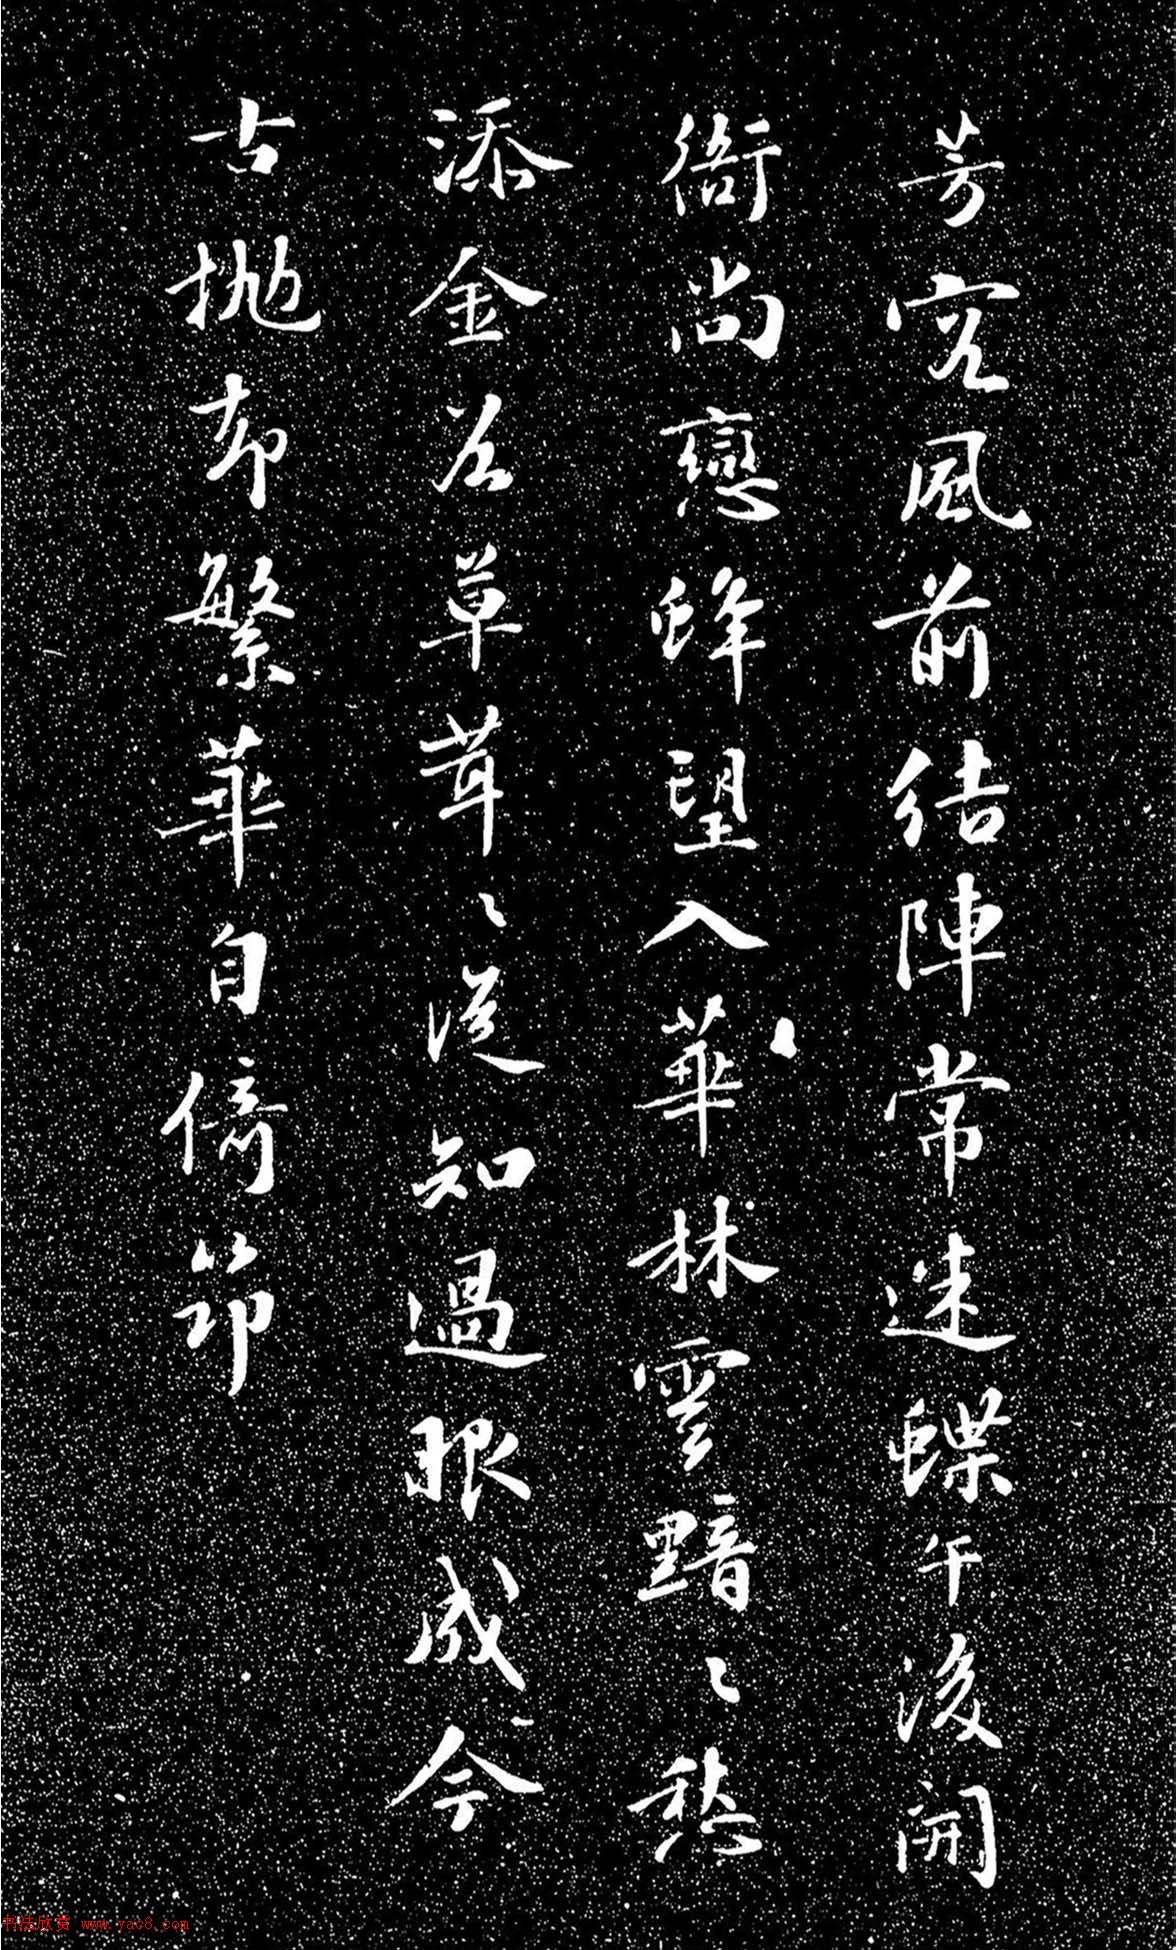 芳容風前結陣常迷蝶午後開
衙尚戀蜂望入華林雲黯〻愁
添金谷草茸〻從知過眼成今
古拋却繁華自倚筇
书法欣赏 www.yac8.com